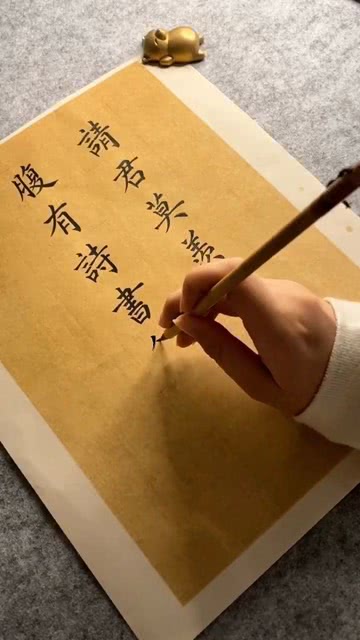 請君莫羨
腹有詩書